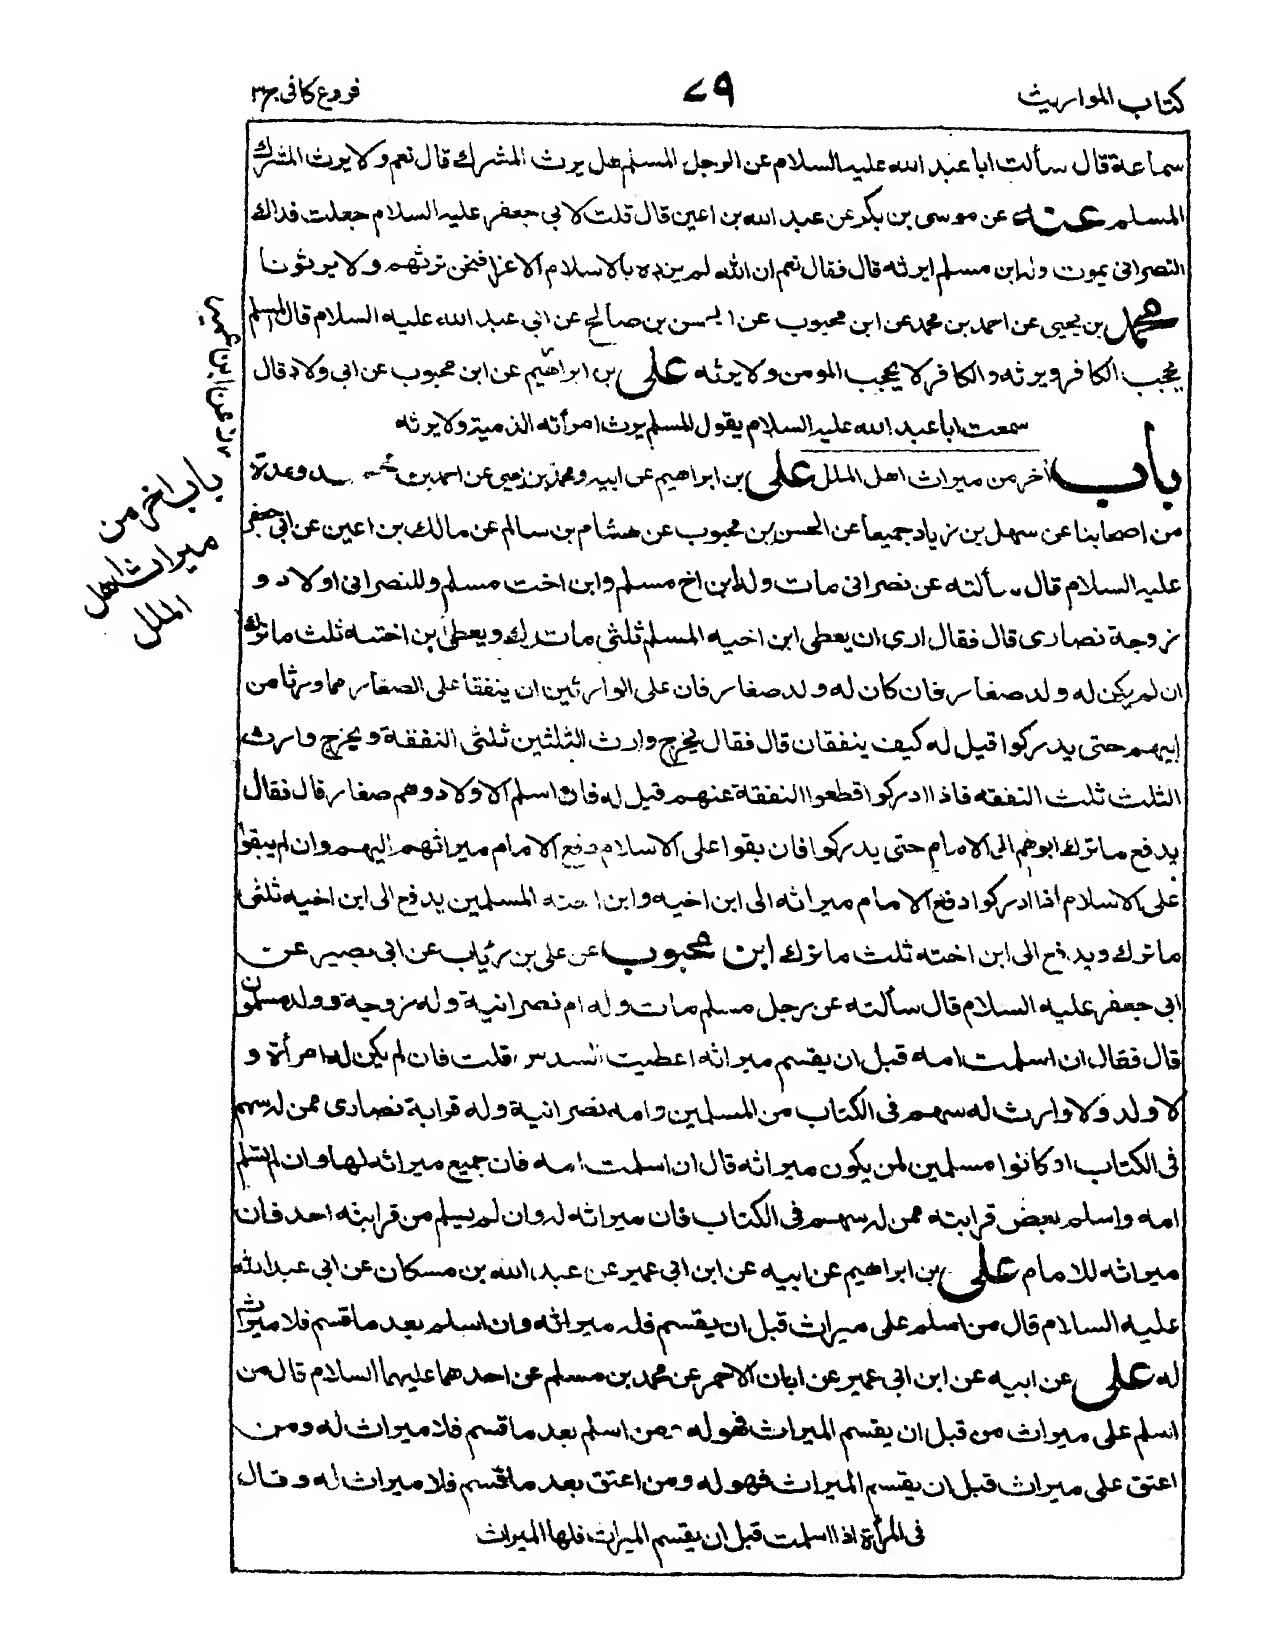 كتاب المواريث
٧٩
فروع كافى ج٣
سماعة قال سألت ابا عبد الله عليه السلام عن الرجل المسلم هل يرث المشرك قال نعم ولا يرث المشرك
المسلم عنه عن موسى بن بكر عن عبد الله بن اعين قال قلت لابى جعفر عليه السلام جعلت فداك
النصرانى يموت وله ابن مسلم ايرثه قال فقال نعم ان الله لم يزده بالاسلام الا عزا فنحن نرثهم ولا يرثونا
محمد بن يحيى عن احمد بن محمد عن ابن محبوب عن الحسن بن صالح عن ابى عبد الله عليه السلام قال المسلم
يحجب الكافر ويرثه والكافر لا يحجب المومن ولا يرثه على بن ابراهيم عن ابن محبوب عن ابى ولاد قال
سمعت ابا عبد الله عليه السلام يقول المسلم يرث امرأته الذمية ولا يرثه
باب اخر من ميراث اهل الملل على بن ابراهيم عن ابيه ومحمد بن يحيى عن احمد بن محمد وعدة
من اصحابنا عن سهل بن زياد جميعا عن الحسن بن محبوب عن هشام بن سالم عن مالك بن اعين عن ابى جعفر
عليه السلام قال سألته عن نصرانى مات وله ابن اخ مسلم وابن اخت مسلم وللنصرانى اولاد و
زوجة نصارى قال فقال ارى ان يعطى ابن اخيه المسلم ثلثى ما ترك ويعطى ابن اخته ثلث ما ترك
ان لم يكن له ولد صغار فان كان له ولد صغار فان على الوارثين ان ينفقا على الصغار مما ورثا من
ابيهم حتى يدركوا قيل له كيف ينفقان قال فقال يخرج وارث الثلثين ثلثى النفقة ويخرج وارث
الثلث ثلث النفقه فاذا ادركوا قطعوا النفقة عنهم قيل له فان اسلم الاولاد وهم صغار قال فقال
يدفع ما ترك ابوهم الى الامام حتى يدركوا فان بقوا على الاسلام دفع الامام ميراثهم اليهم وان لم يبقوا
على الاسلام اذا ادركوا دفع الامام ميراثه الى ابن اخيه وابن اخته المسلمين يدفع الى ابن اخيه ثلثى
ما ترك ويدفع الى ابن اخته ثلث ما ترك ابن محبوب عن على بن رئاب عن ابى بصير عن
ابى جعفر عليه السلام قال سألته عن رجل مسلم مات وله ام نصرانية وله زوجة وولد مسلمون
قال فقال ان اسلمت امه قبل ان يقسم ميراثه اعطيت السدس قلت فان لم يكن له امرأة و
لا ولد ولا وارث له سهم فى الكتاب من المسلمين وامه نصرانية وله قرابة نصارى ممن له سهم
فى الكتاب لو كانوا مسلمين لمن يكون ميراثه قال ان اسلمت امه فان جميع ميراثه لها وان لم تسلم
امه واسلم بعض قرابته ممن له سهم فى الكتاب فان ميراثه له وان لم يسلم من قرابته احد فان
ميراثه للامام على بن ابراهيم عن ابيه عن ابن ابى عمير عن عبد الله بن مسكان عن ابى عبد الله
عليه السلام قال من اسلم على ميراث قبل ان يقسم فله ميراثه وان اسلم بعد ما قسم فلا ميراث
له على عن ابيه عن ابن ابى عمير عن ابان الاحمر عن محمد بن مسلم عن احدهما عليهما السلام قال من
اسلم على ميراث من قبل ان يقسم الميراث فهو له ومن اسلم بعد ما قسم فلا ميراث له ومن
اعتق على ميراث قبل ان يقسم الميراث فهو له ومن اعتق بعد ما قسم فلا ميراث له وقال
فى المرأة اذا اسلمت قبل ان يقسم الميراث فلها الميراث
باب اخر من
ميراث اهل
الملل